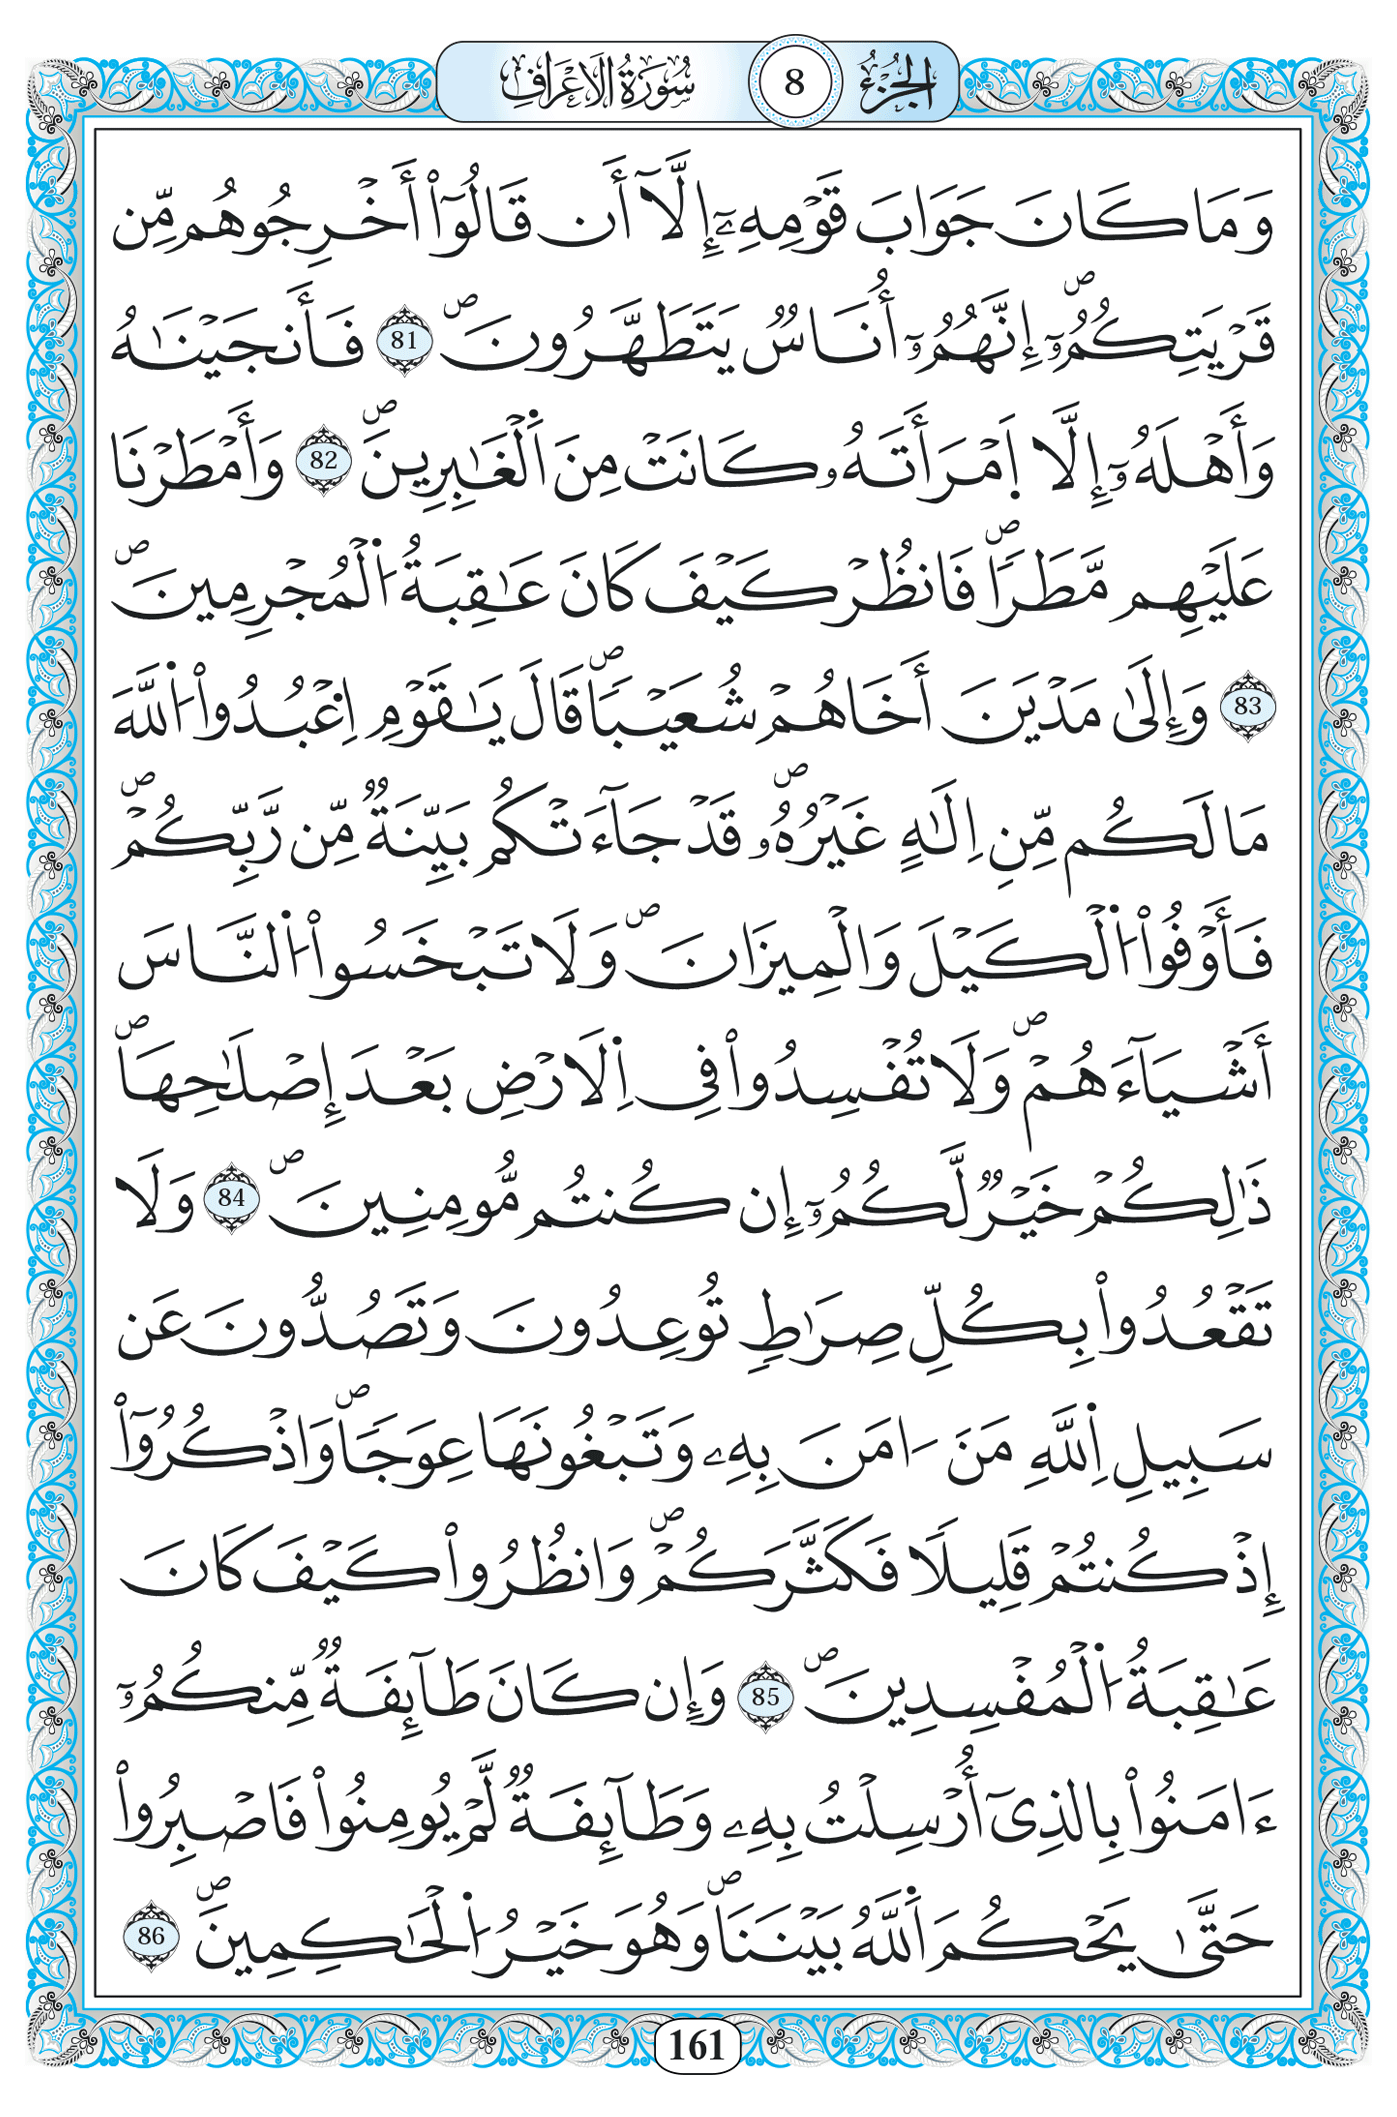 الجُزْءُ 8 سُورَةُ الَاعْرَافِ
وَمَا كَانَ جَوَابَ قَوْمِهِۦٓ إِلَّآ أَن قَالُوٓاْ أَخْرِجُوهُم مِّن
قَرْيَتِكُمُۥٓۖ إِنَّهُمُۥٓ أُنَاسٞ يَتَطَهَّرُونَۖ 81 فَأَنجَيْنَٰهُ
وَأَهْلَهُۥٓ إِلَّا اَمْرَأَتَهُۥ كَانَتْ مِنَ اَلْغَٰبِرِينَۖ 82 وَأَمْطَرْنَا
عَلَيْهِم مَّطَراٗۖ فَانظُرْ كَيْفَ كَانَ عَٰقِبَةُ اُلْمُجْرِمِينَۖ
83 وَإِلَىٰ مَدْيَنَ أَخَاهُمْ شُعَيْباٗۖ قَالَ يَٰقَوْمِ اِعْبُدُواْ اُللَّهَ
مَا لَكُم مِّنِ اِلَٰهٍ غَيْرُهُۥۖ قَدْ جَآءَتْكُم بَيِّنَةٞ مِّن رَّبِّكُمْۖ
فَأَوْفُواْ اُلْكَيْلَ وَالْمِيزَانَۖ وَلَا تَبْخَسُواْ اُلنَّاسَ
أَشْيَآءَهُمْۖ وَلَا تُفْسِدُواْ فِي اِلَارْضِ بَعْدَ إِصْلَٰحِهَاۖ
ذَٰلِكُمْ خَيْرٞ لَّكُمُۥٓ إِن كُنتُم مُّومِنِينَۖ 84 وَلَا
تَقْعُدُواْ بِكُلِّ صِرَٰطٖ تُوعِدُونَ وَتَصُدُّونَ عَن
سَبِيلِ اِللَّهِ مَنَ اٰمَنَ بِهِۦ وَتَبْغُونَهَا عِوَجاٗۖ وَاذْكُرُوٓاْ
إِذْ كُنتُمْ قَلِيلاٗ فَكَثَّرَكُمْۖ وَانظُرُواْ كَيْفَ كَانَ
عَٰقِبَةُ اُلْمُفْسِدِينَۖ 85 وَإِن كَانَ طَآئِفَةٞ مِّنكُمُۥٓ
ءَامَنُواْ بِالذِيٓ أُرْسِلْتُ بِهِۦ وَطَآئِفَةٞ لَّمْ يُومِنُواْ فَاصْبِرُواْ
حَتَّىٰ يَحْكُمَ اَللَّهُ بَيْنَنَاۖ وَهُوَ خَيْرُ اُلْحَٰكِمِينَۖ 86
161